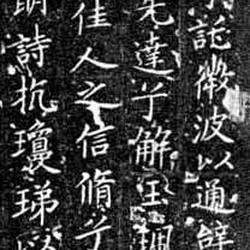 託微波以通辭
先達兮解玉珮
佳人之信脩兮
明詩抗瓊珶以